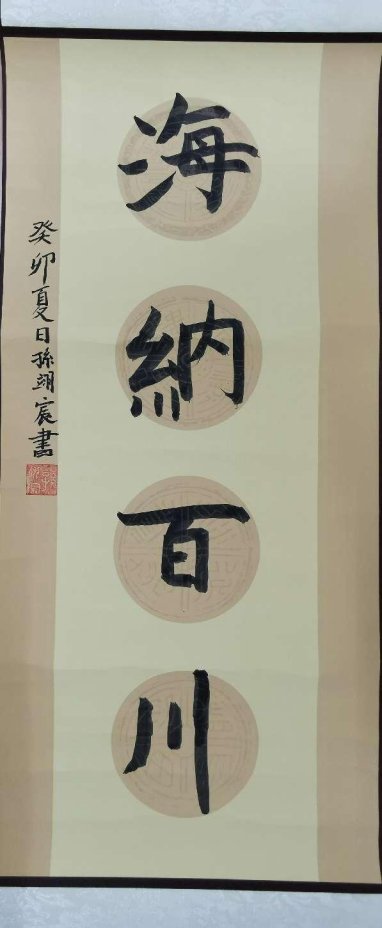 海納百川
癸卯夏日孫翊宸書